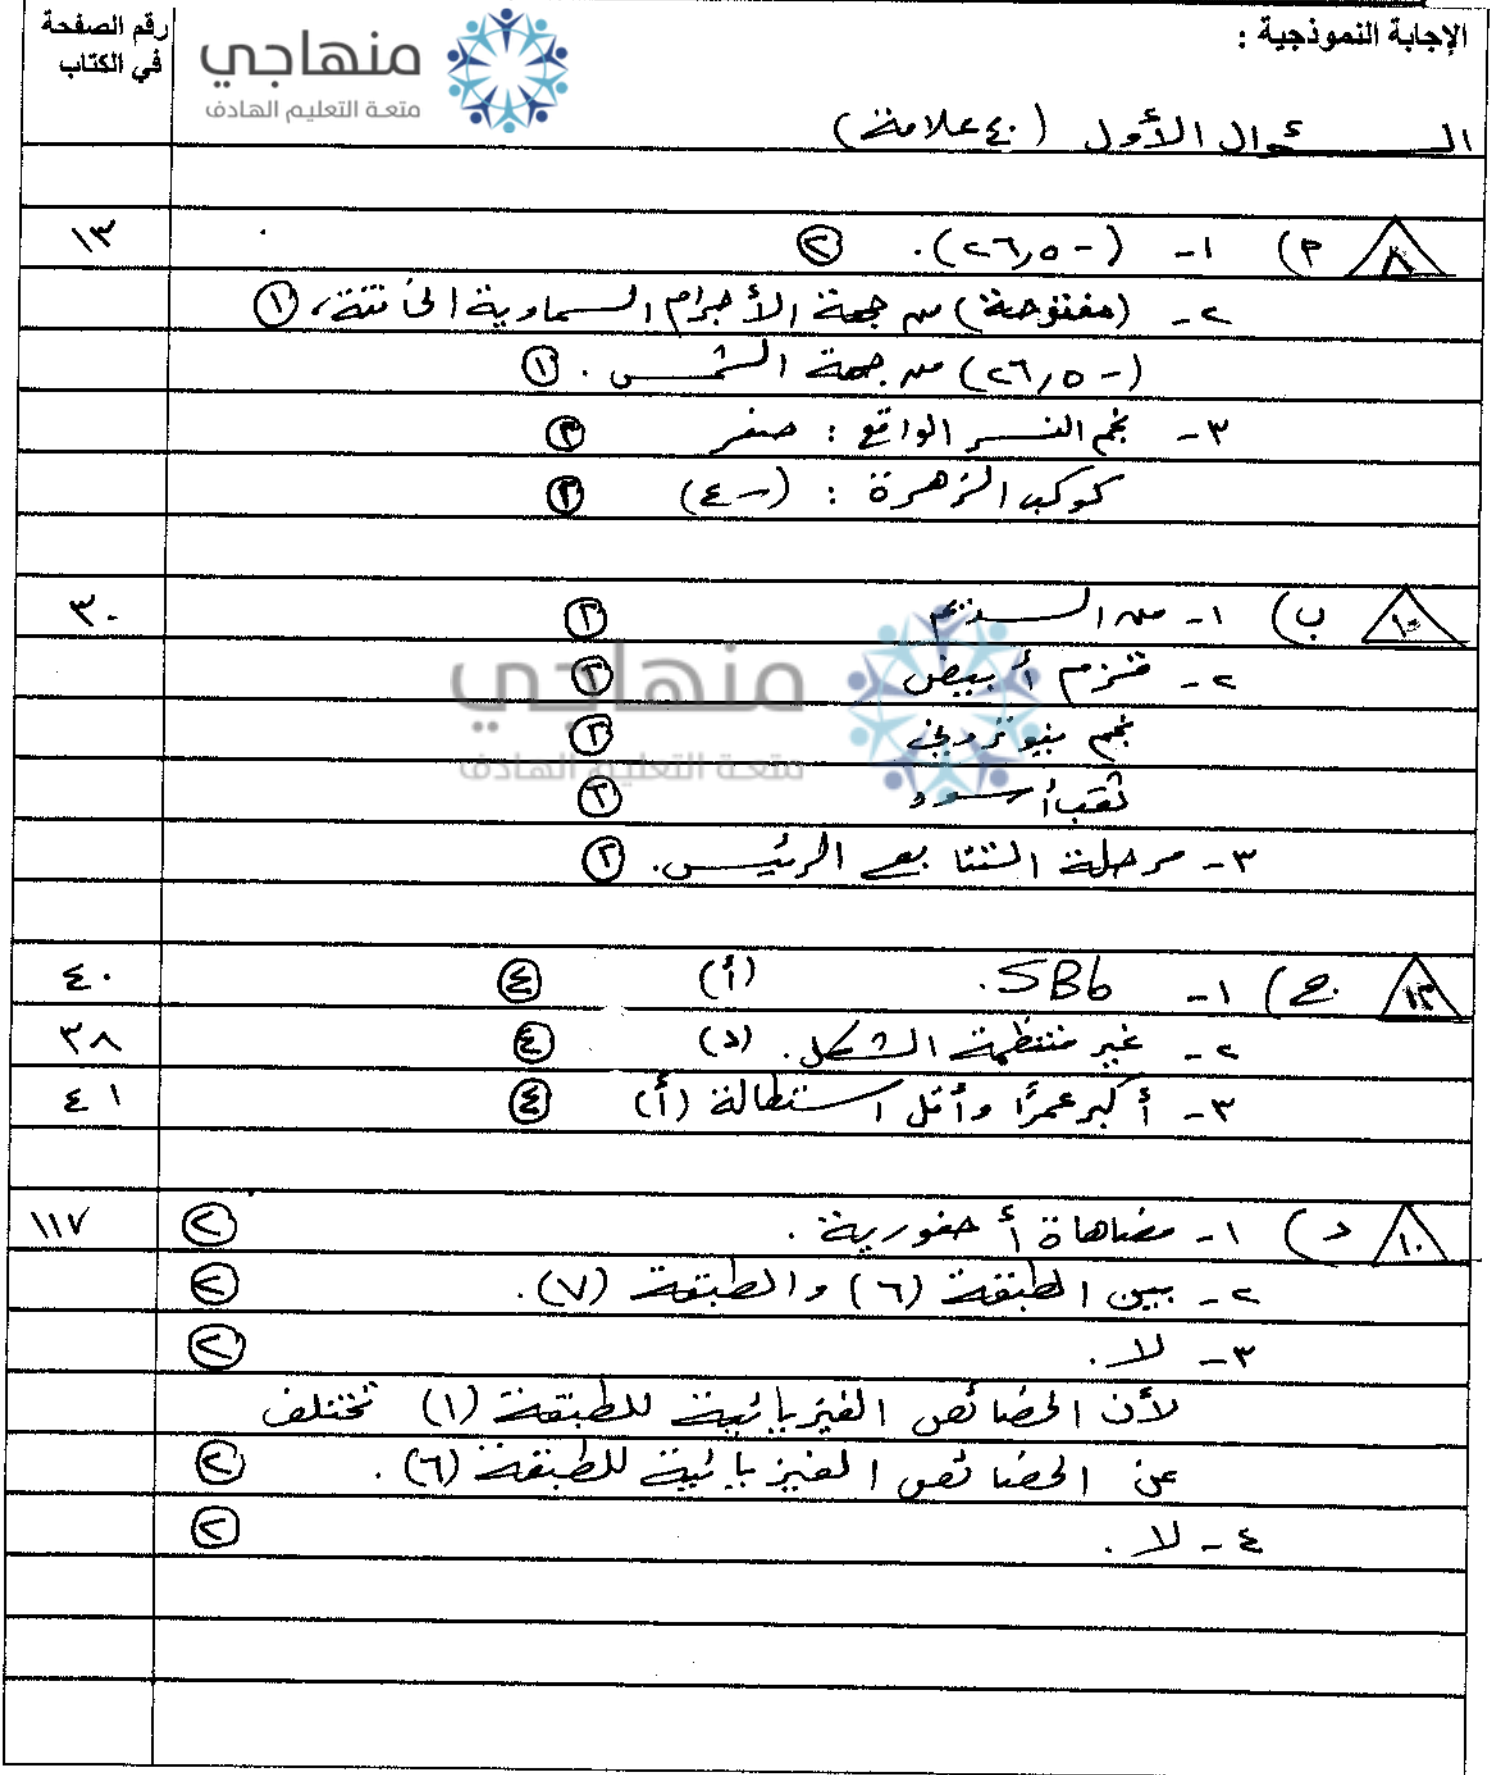 رقم الصفحة
في الكتاب
منهاجي
متعة التعليم الهادف
الإجابة النموذجية :
السؤال الأول (٤٠ علامة)
٨ أ) ١- (-٢٦,٥). ٢ ١٣
٢- (مفتوحة) من جهة الأجرام السماوية الخافتة، ١
(-٢٦,٥) من جهة الشمس. ١
٣- نجم النسر الواقع : صفر ٢
كوكب الزهرة : (-٤) ٢
١٠ ب) ١- من السدم ٢ ٣٠
٢- قزم أبيض ٢
نجم نيوتروني ٢
ثقب أسود ٢
٣- مرحلة التتابع الرئيس. ٢
منهاجي
متعة التعليم الهادف
١٢ ج) ١- SBb. (أ) ٤ ٤٠
٢- غير منتظمة الشكل. (د) ٤ ٣٨
٣- أكبر عمرًا وأقل استطالة (أ) ٤ ٤١
١٠ د) ١- مضاهاة أحفورية. ٢ ١١٧
٢- بين الطبقة (٦) والطبقة (٧). ٢
٣- لا. ٢
لأن الخصائص الفيزيائية للطبقة (١) تختلف
عن الخصائص الفيزيائية للطبقة (٦). ٢
٤- لا. ٢